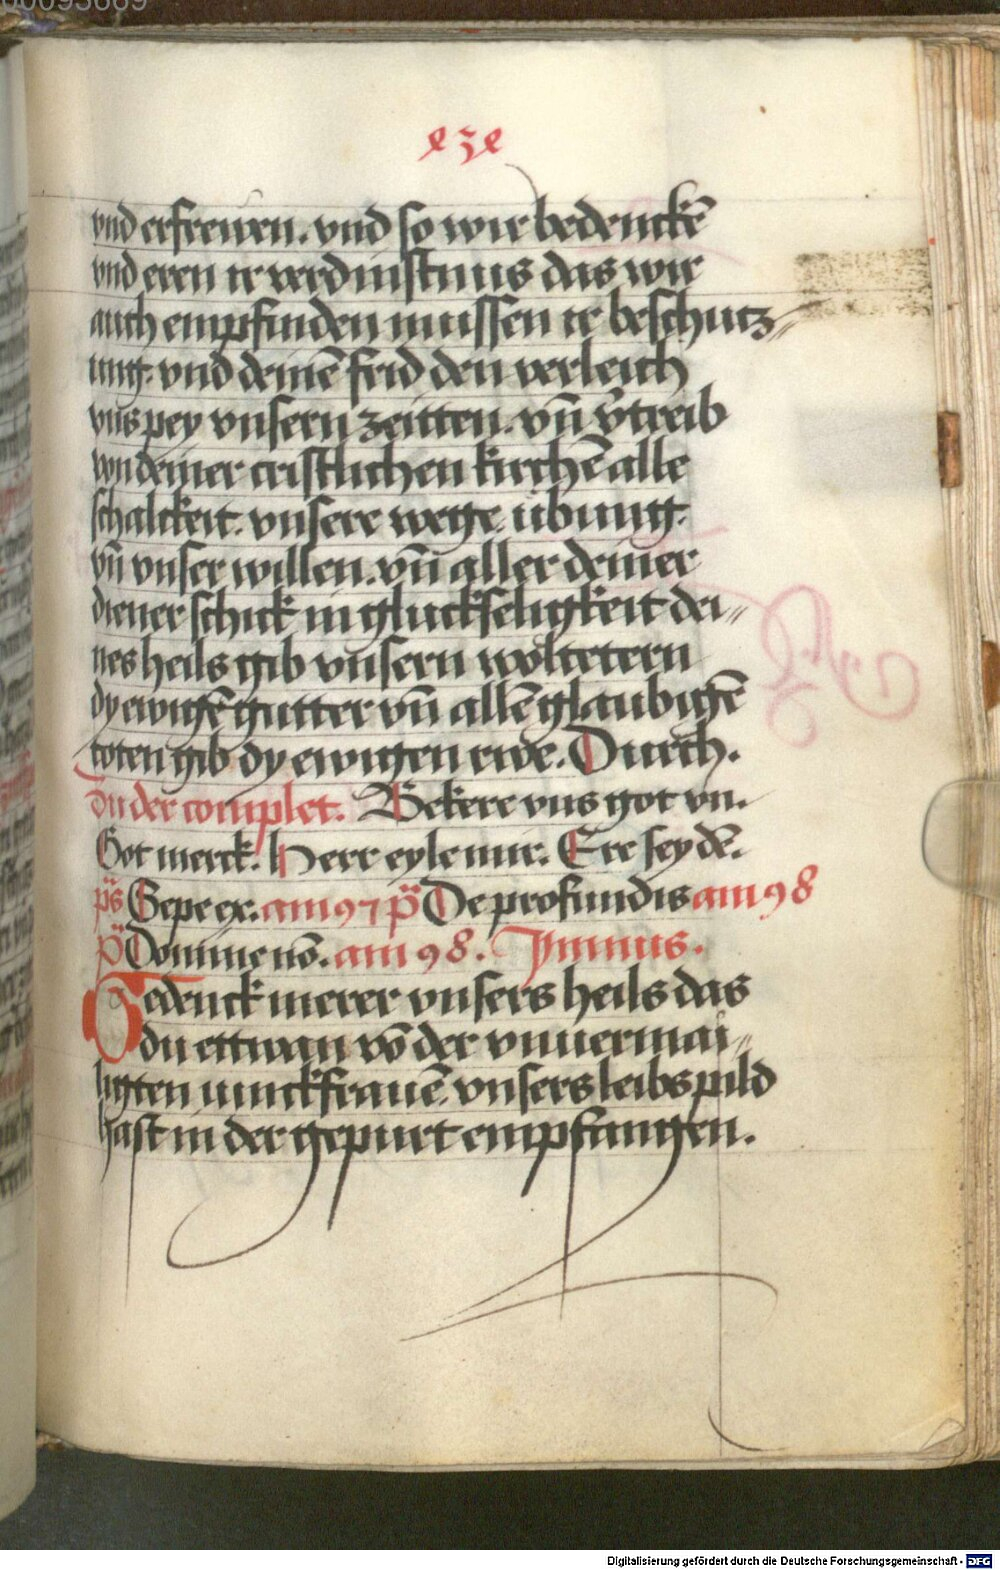 vnd erfreuen. vnd so wir bedenckē
vnd eren ir verdinstnus das wir
auch empfinden mussen ir beschutz-
ung. vnd deinē frid den verleich
vns pey vnsern zeitten. vn̄ v̄treib
von deiner cristlichen kirchē alle
schalckeit. vnsere wege. ubung.
vn̄ vnser willen. vn̄ aller deiner
diener schick in gluckseligkeit dei-
nes heils gib vnsern woltetern
dy ewigē gutter vn̄ allē glaubigē
toten gib dy ewigen rwe. Durch.
Zu der complet. Bekere vns got vn.
Got merck. Herr eyle mir. Ere sey dē.
ps Sepe ex. am 97 ps De profundis am 98
ps Domine nō. am 98. Ymnus.
Gedenck merer vnsers heils das
du ettwan vō der vnuermai-
ligten iunckfrauē. vnsers leibs pild
hast in der gepurt empfangen.
Digitalisierung gefördert durch die Deutsche Forschungsgemeinschaft - DFG